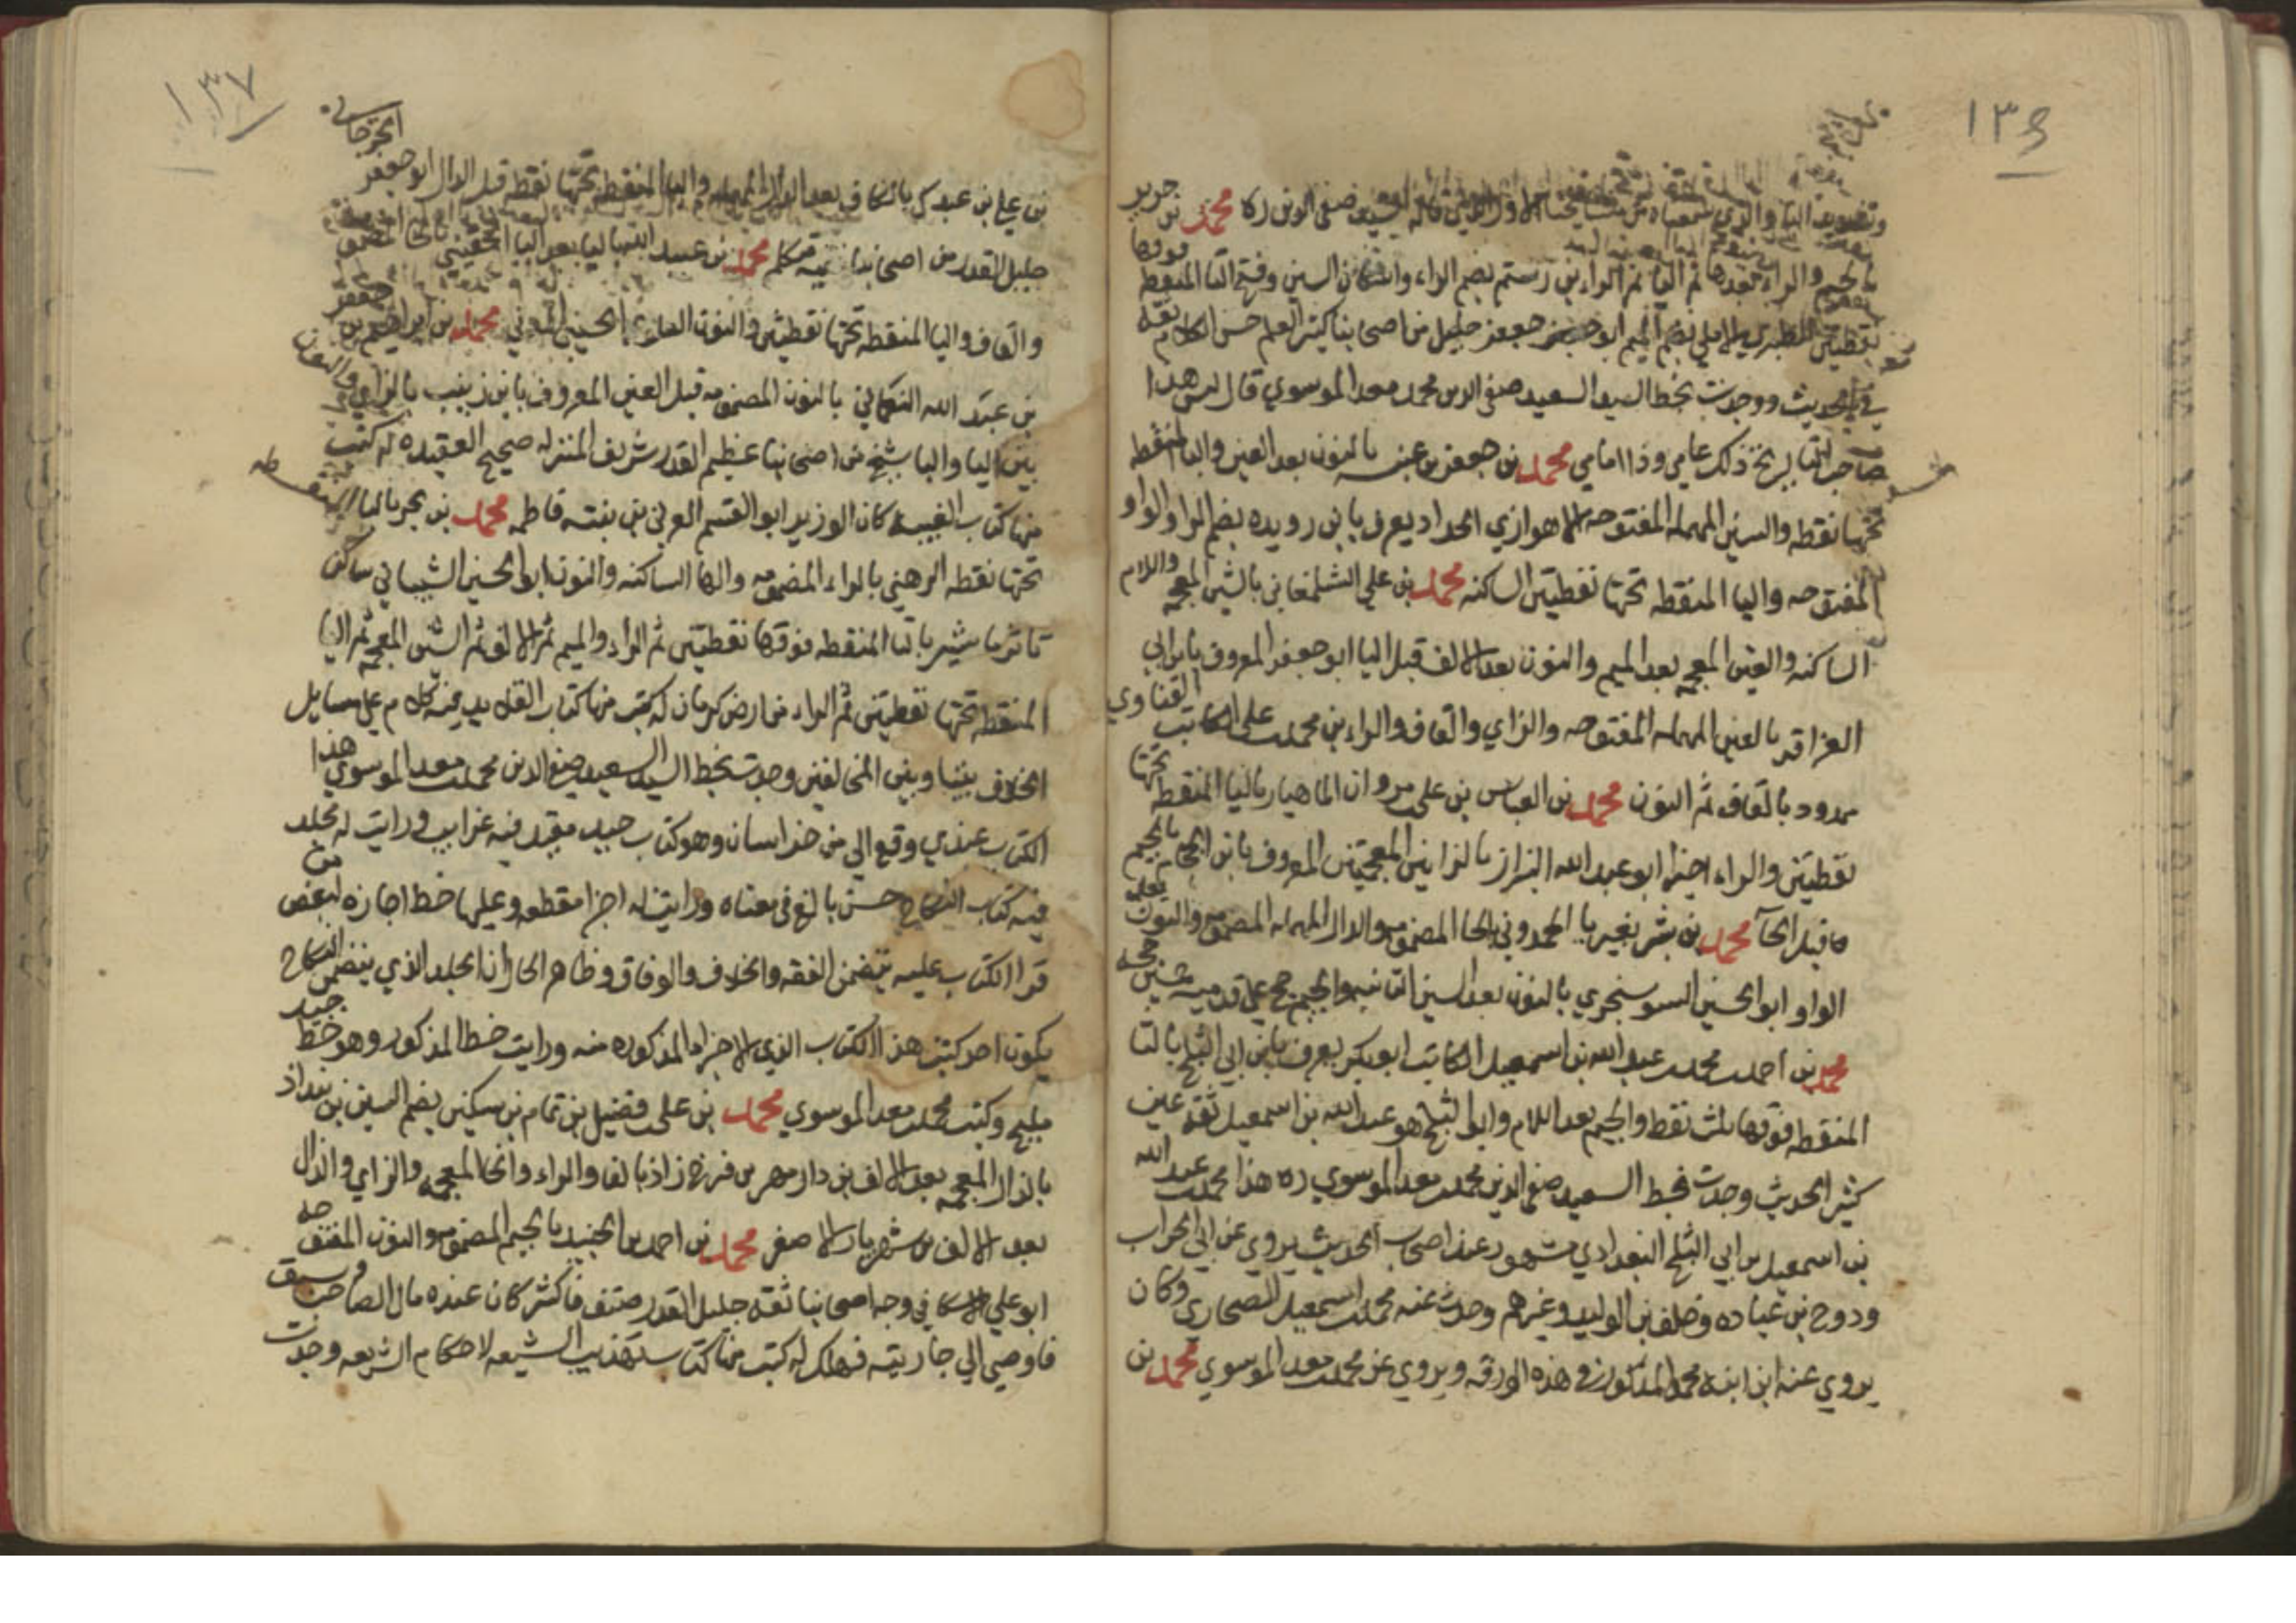 ١٣٦
محمد بن جرير
بالجيم والراء بعدها ثم اليا ثم الراء بن رستم بضم الراء واسكان السين وفتح التا المنقطه فوقها
نقطتين الطبري الاملي بضم الميم ابو جعفر جليل من اصحابنا كثير العلم حسن الكلام ثقه
في الحديث ووجدت بخط السيد السعيد صفي الدين محمد معد الموسوي قال ليس هذا
صاحب التاريخ ذلك عامي وذا امامي محمد بن جعفر بن عنبسه بالنون بعد العين والبا المنقطه
تحتها نقطه والسين المهمله المفتوحه الاهوازي الحداد يعرف بابن رويده بضم الراء والواو
المفتوحه واليا المنقطه تحتها نقطتين الساكنه محمد بن علي الشلمغاني بالشين المعجمه واللام
الساكنه والغين المعجمه بعد الميم والنون بعد الالف قبل اليا ابو جعفر المعروف بابن ابي
العزاقر بالعين المهمله المفتوحه والزاي والقاف والراء بن محمد علي الكاتب القناوي
ممدود بالقاف ثم النون محمد بن العباس بن علي مروان الماهيار باليا المنقطه تحتها
نقطتين والراء اخيرا ابو عبد الله البزاز بالزايين المعجمتين المعروف بابن الجحام بالجيم
قبل الحآ محمد بن بشر بغير يا الحمدوني بالحا المضمومه والدال المهمله المضمومه والنون بعد
الواو ابو الحسين السوسنجردي بالنون بعد السين الثانيه والجيم حج علي قدميه خمسين حجه
محمد بن احمد محمد عبد الله بن اسمعيل الكاتب ابو بكر يعرف بابن ابي الثلج بالثا
المنقطه فوقها ثلث نقط والجيم بعد اللام وابو الثلج هو عبد الله بن اسمعيل ثقه عين
كثير الحديث وجدت بخط السعيد صفي الدين محمد معد الموسوي ره هذا محمد عبد الله
بن اسمعيل بن ابي الثلج البغدادي مشهور عند اصحاب الحديث يروي عن ابي الحراب
ودوح بن عباده وخلف بن الوليد وغيرهم وحدث عنه محمد اسمعيل البخاري وكان
يروي عنه ابن ابنه محمد المذكور في هذه الورقه ويروي عن محمد معد الموسوي محمد بن
١٣٧
بن علي بن عبدك بالكاف بعد الدال المهمله والبا المنقطه تحتها نقطه قبل الدال ابو جعفر الجرجاني
جليل القدر من اصحابنا فقيه متكلم محمد بن عبيد الله
والقاف واليا المنقطه تحتها نقطتين والنون العلوي الحسيني محمد بن ابراهيم بن جعفر
بن عبد الله النعماني بالنون المضمومه قبل العين المعروف بابن زينب بالزاي والنون
بين اليا والبا شيخ من اصحابنا عظيم القدر شريف المنزله صحيح العقيده له كتب
منها كتاب الغيبه كان الوزير ابو القسم المغربي بن بنته فاطمه محمد بن بحر بالبا المنقطه
تحتها نقطه الرهني بالراء المضمومه والها الساكنه والنون ابو الحسين الشيباني ساكن
ترماشير بالتا المنقطه فوقها نقطتين ثم الراء والميم ثم الالف ثم الشين المعجمه ثم اليا
المنقطه تحتها نقطتين ثم الراء من ارض كرمان له كتب منها كتاب القلايد فيه كلام علي مسايل
الخلاف بيننا وبين المخالفين وجدت بخط السيد السعيد صفي الدين محمد معد الموسوي هذا
الكتاب عندي وقع الي من خراسان وهو كتاب جيد مفيد فيه غرايب ورايت له مجلد
فيه كتاب النكاح حسن بالغ في معناه ورايت له اجزا مقطعه وعليها خط اجازه لبعض من
قرا الكتاب عليه يتضمن الفقه والخلاف والوفاق وظاهر الحال ان المجلد الذي يتضمن النكاح
يكون احد كتب هذا الكتاب الذي الاجزاء المذكوره منه ورايت خط المذكور وهو خط جيد
مليح وكتب محمد معد الموسوي محمد بن علي فضيل بن تمام بن سكين بضم السين بن بنداذ
بالذال المعجمه بعد الالف بن داذمهر بن فرخ زاذ بالفا والراء والخا المعجمه والزاي والذال
بعد الالف بن شهريار الاصغر محمد بن احمد بن الجنيد بالجيم المضمومه والنون المفتوحه
ابو علي الاسكافي وجه اصحابنا ثقه جليل القدر صنف فاكثر كان عنده مال الصاحب وسيف
فاوصي الي جاريته فهلك له كتب منها كتاب تهذيب الشيعه لاحكام الشريعه وجدت